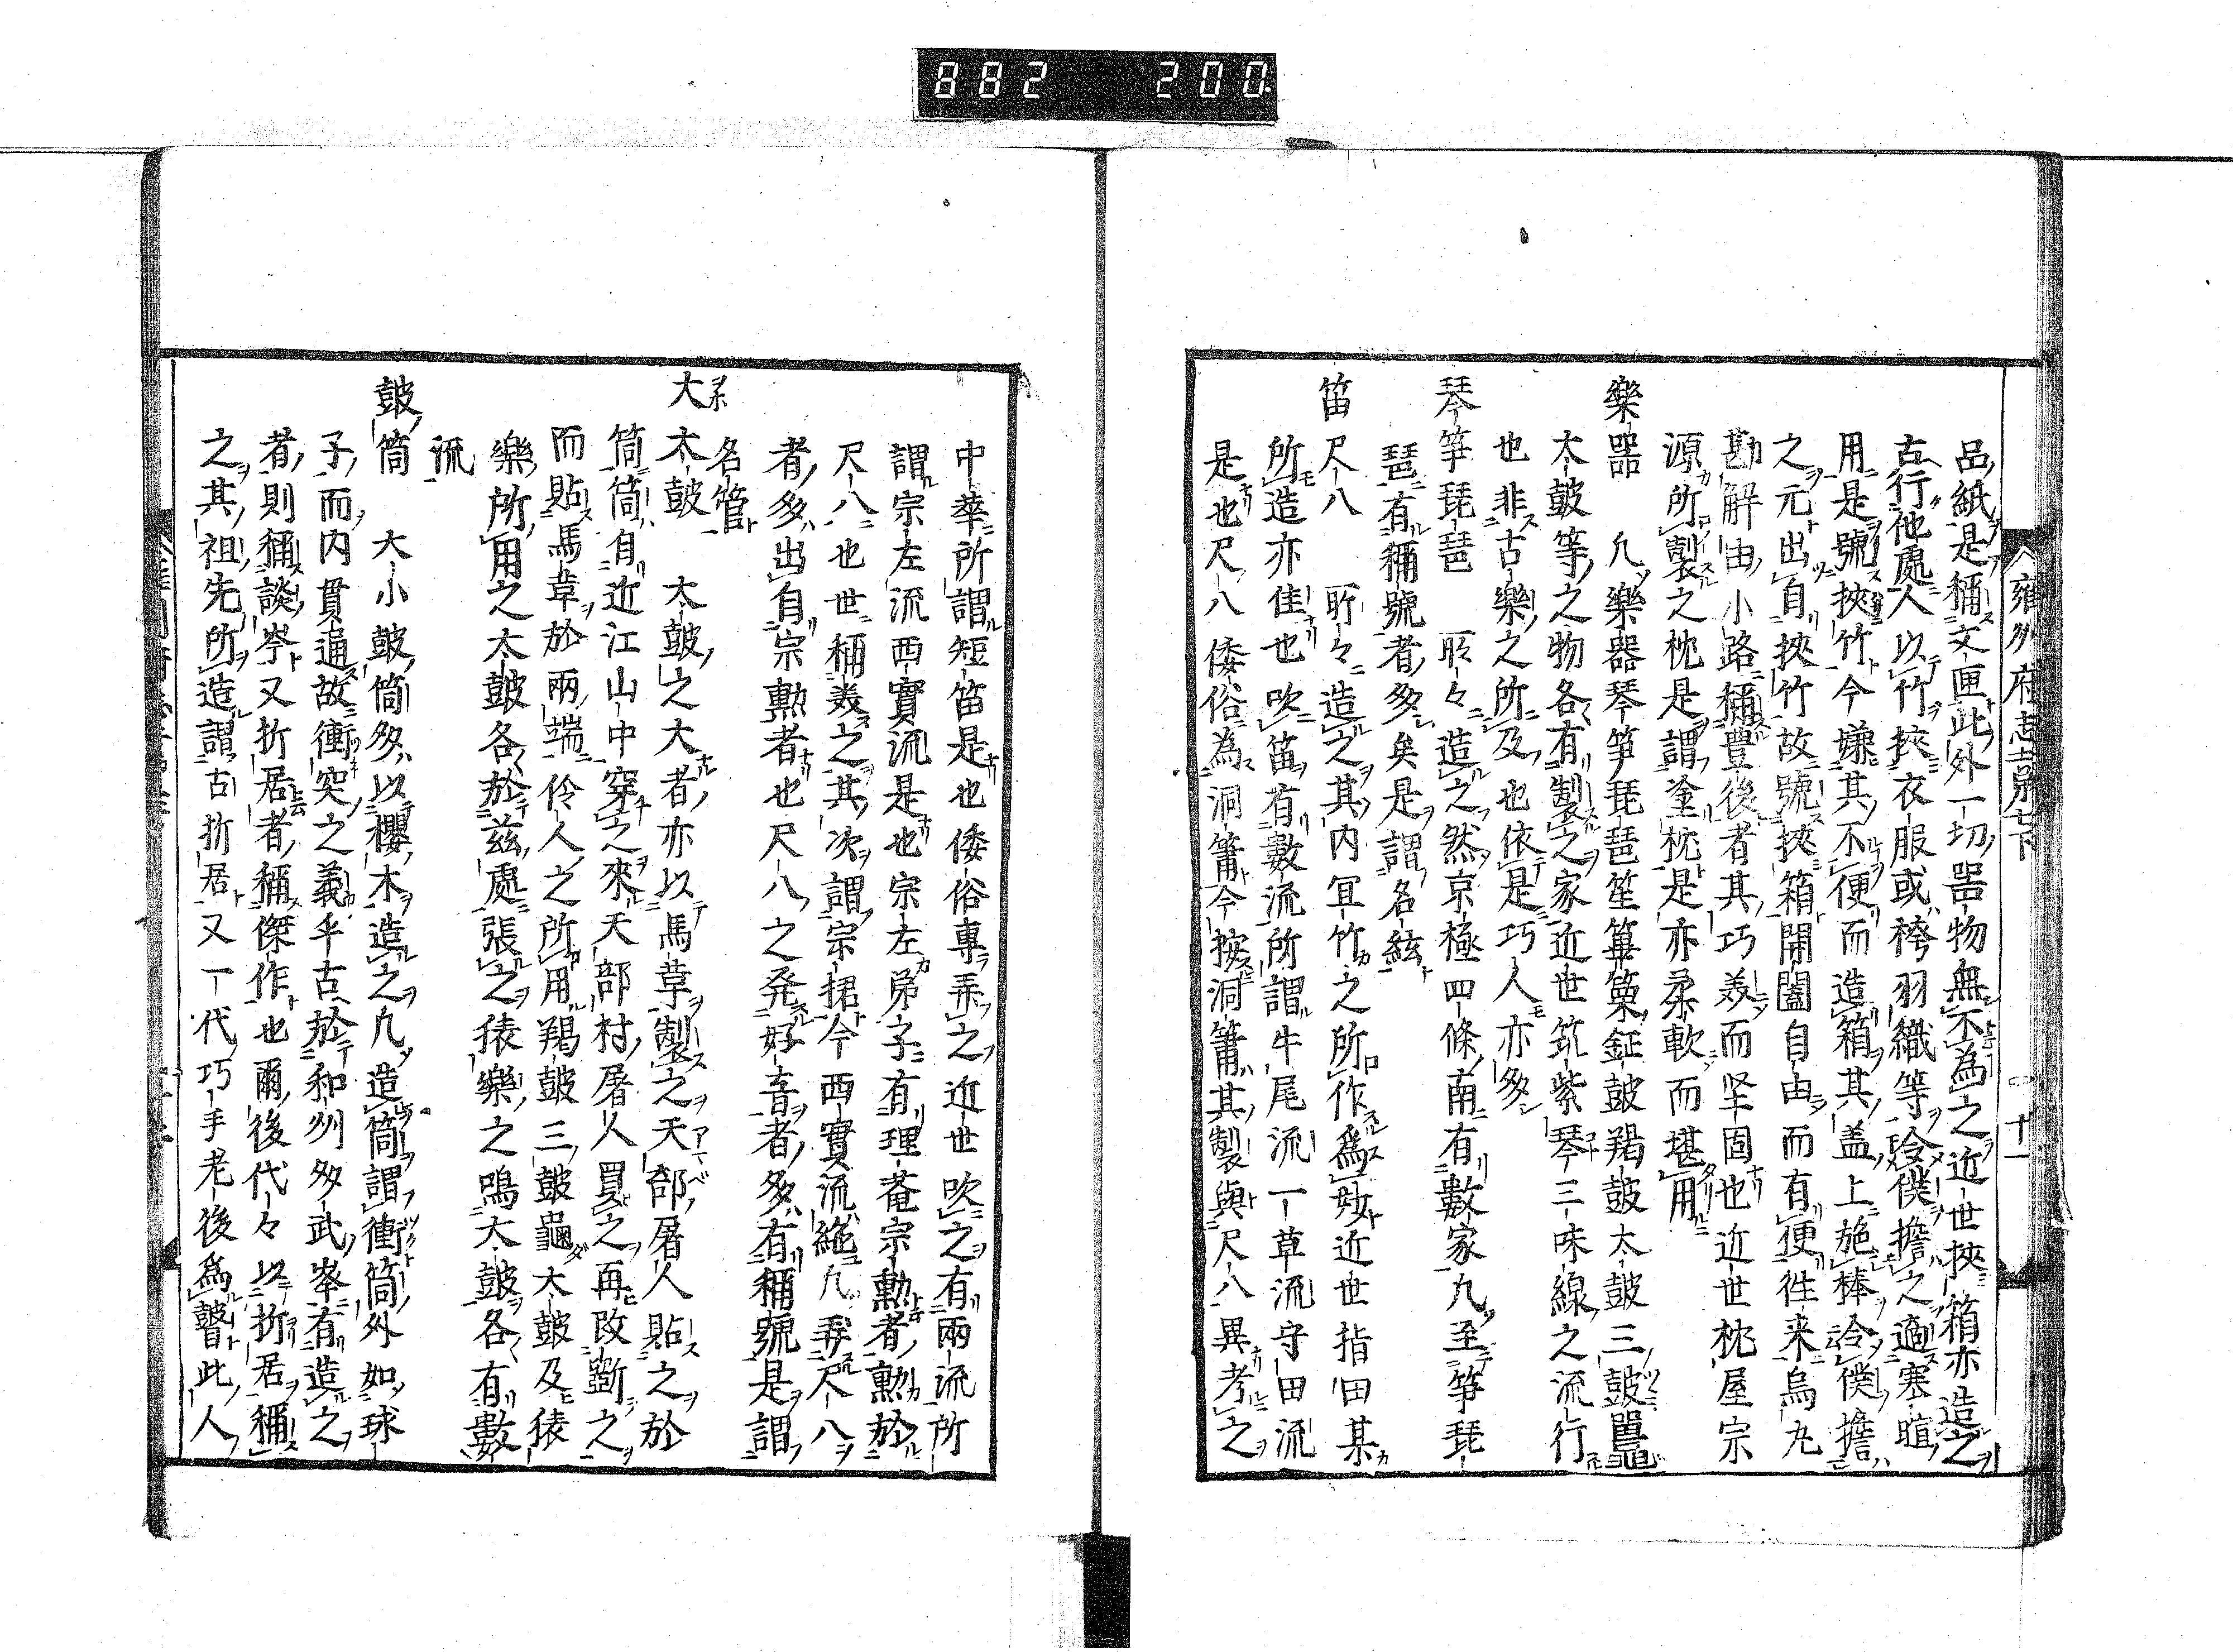 882 200
雍州府志 第七下
十一
品紙是稱文匣此外一切噐物無不為之近世挾箱亦造之
古行他處人以竹挾衣服或袴羽織等令僕擔之適塞暄
用是號挾竹今嫌其不便而造箱其盖上施棒令僕擔
之元出自挾竹故號挾箱開闔自由而有便徃来烏丸
勘解由小路稱豊後者其巧美而坚固也近世枕屋宗
源所製之枕是謂塗枕是亦柔軟而堪用
樂噐 凢樂器琴筝琵琶笙篳篥鉦鼓羯鼓太鼓三鼓
太鼓等之物各有製之家近世筑紫琴三味線之流行
也非古樂之所及也依是巧人亦多
琴筝琵琶 所々造之然京極四條南有數家凢至筝琵
琶有稱號者多矣是謂名絃
笛尺八 所々造之其内冝竹之所作為妙近世指田某
所造亦佳也吹笛有數流所謂牛尾流一草流守田流
是也尺八倭俗為洞簫今按洞簫其製與尺八異考之
中華所謂短笛是也倭俗専弄之近世吹之有兩流所
謂宗左流西實流是也宗左弟子有理菴宗勲者勲於
尺八也世稱美之其次謂宗捃今西實流絶凢弄尺八
者多出自宗勲者也尺八之発好音者多有稱號是謂
名管
大太鼓 太鼓之大者亦以馬韋製之天部屠人貼之於
筒筒自近江山中穿之來天部村屠人買之再改斵之
而貼馬韋於兩端伶人之所用羯鼓三鼓鼉太鼓及猿
樂所用之太鼓各於茲處張之猿樂之鳴大鼓各有數
流
鼓筒 大小鼓筒多以櫻木造之凢造筒謂衝筒外如球
子而内貫通故衝突之義乎古於和州多武峯有造之
者則稱談峯又折居者稱傑作也爾後代々以折居稱
之其祖先所造謂古折居又一代巧手老後為瞽此人